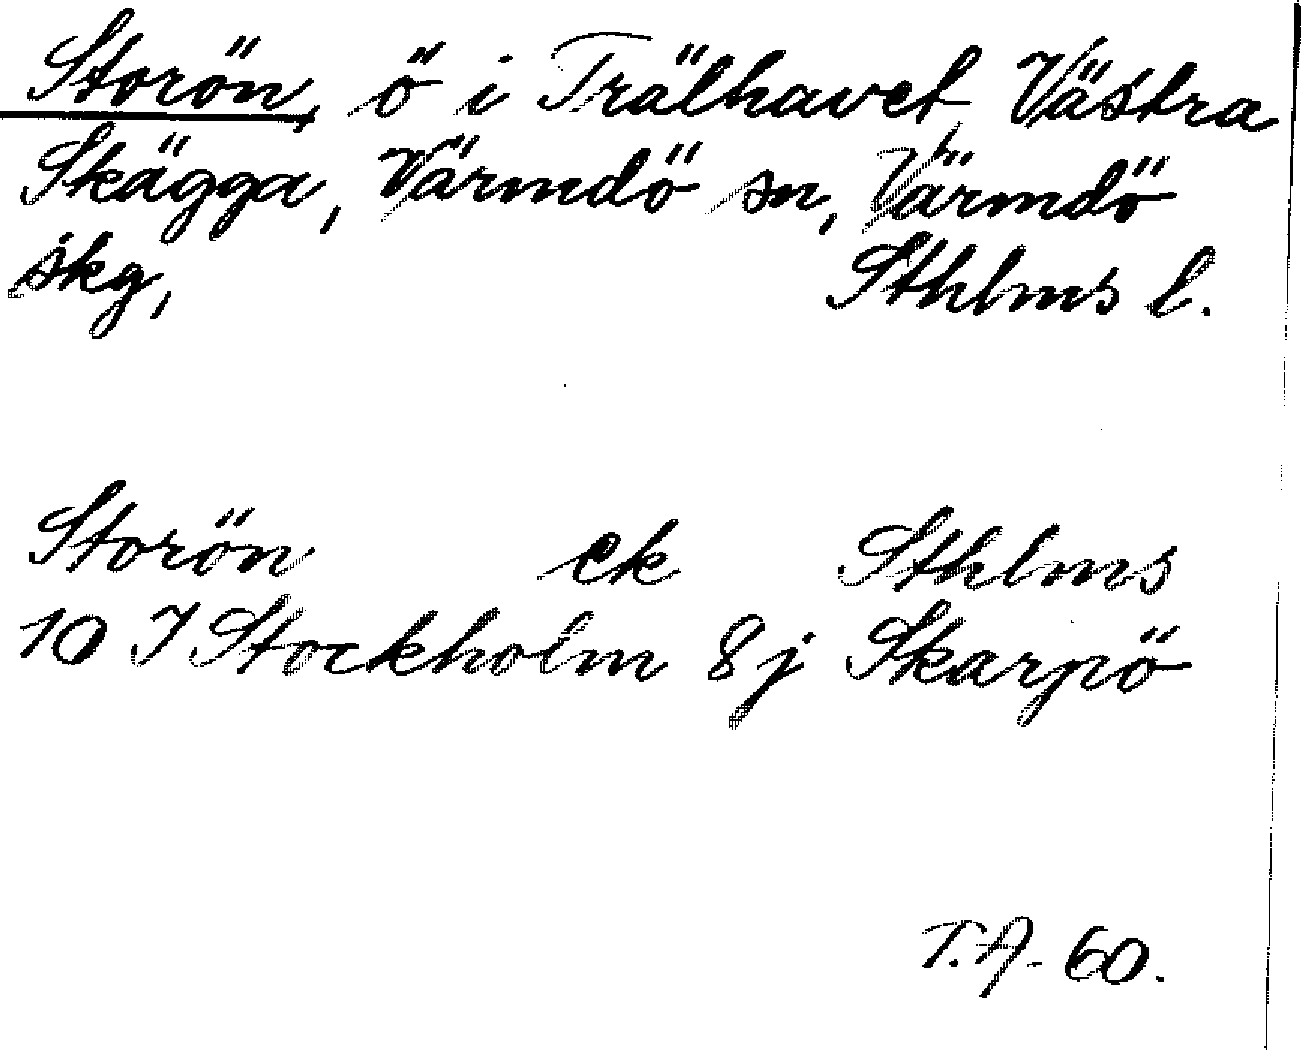 Storön, ö i Trälhavet, Västra
Skägga, Värmdö sn, Värmdö
skg, Sthlms l.
Storön ek Sthlms
10 I Stockholm 8j Skarpö
T.A. 60.